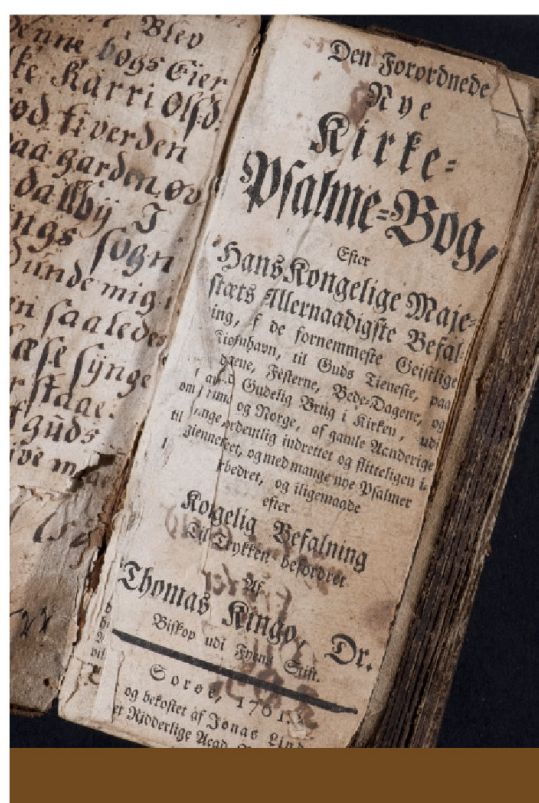 Blev
denne bogs Eier
Karri Olsd.
tiverden
gaarden
dalbÿ I
sogn
unde mig
saaledes
læse synge
guds
Den Forordnede
Nye
Kirke-
Psalme-Bog,
Efter
Hans Kongelige Maje-
stæts Allernaadigste Befal-
ing, af de fornemmeste Geistlige
Kiøbenhavn, til Guds Tieneste, paa
dagene, Festerne, Bede-Dagene, og
Gudelig Brug i Kirken, udi
og Norge, af gamle Aanderige
ordentlig indrettet og flitteligen i-
giennemseet, og med mange nye Psalmer
og iligemaade
efter
Kongelig Befalning
Til Trykken befordret
Af
Thomas Kingo, Dr.
Biskop udi Fyens Stift.
Sorøe, 1761.
og bekostet af Jonas Lind
Ridderlige Acad.